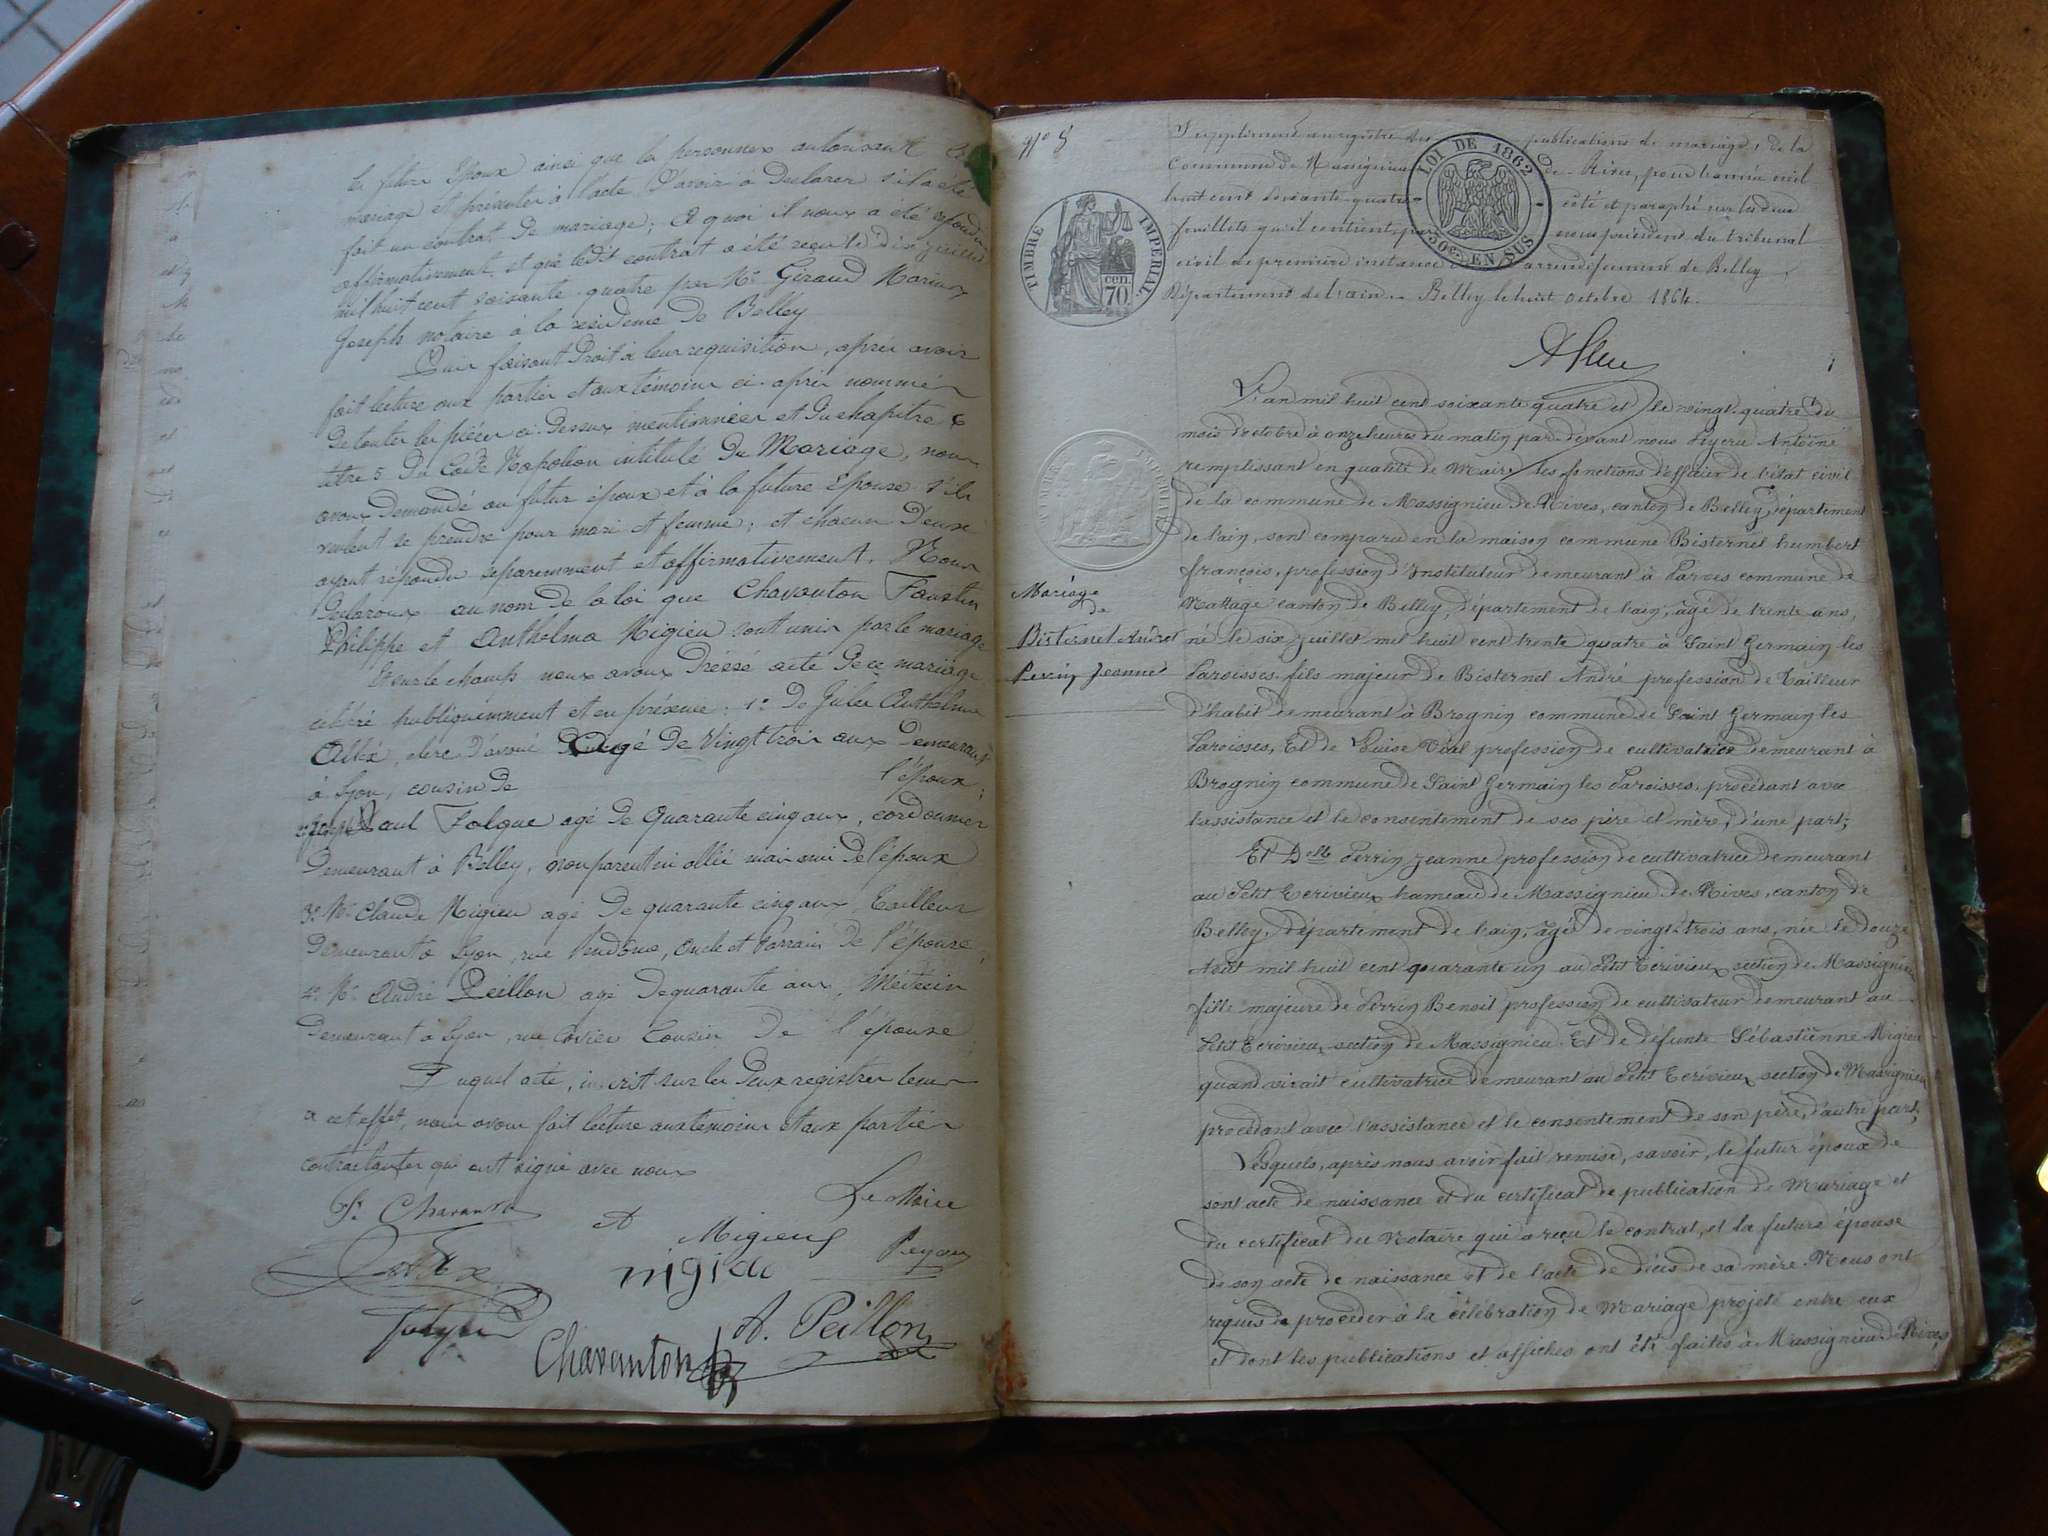 les futurs époux ainsi que les personnes autorisant le
mariage et présentes à l'acte d'avoir à déclarer s'il a été
fait un contrat de mariage; à quoi il nous a été répondu
affirmativement et que ledit contrat a été reçu le dix juillet
mil huit cent soixante quatre par Me Giraud Marius
Joseph notaire à la résidence de Belley
faisant droit à leur requisition, après avoir
fait lecture aux parties et aux témoins ci-après nommés
de toutes les pièces ci-dessus mentionnées et du chapitre 6
titre 5 du Code Napoléon intitulé Du Mariage, nous
avons demandé au futur époux et à la future épouse s'ils
veulent se prendre pour mari et femme; et chacun d'eux
ayant répondu séparemment et affirmativement. Nous
déclarons au nom de la loi que Chavanton Faustin
Philippe et Anthelma Migieu sont unis par le mariage
Et sur le champs nous avons dréssé acte de ce mariage
célébré publiquemment et en présence: 1° De Jules Anthelme
clerc d'avoué agé de vingt trois ans demeurant
à Lyon, cousin de l'époux;
Paul Folque agé de quarante cinq ans, cordonnier
demeurant à Belley, non parent ni allié mais ami de l'époux
3° Mr Claude Migieu agé de quarante cinq ans, tailleur
demeurant à Lyon, rue Vendôme, oncle et Parrain de l'épouse,
4° Mr André Peillon agé de quarante ans, Médecin
demeurant à Lyon, rue Cousin de l'épouse
Duquel acte, inscrit sur les deux registres tenus
à cet effet, nous avons fait lecture aux témoins et aux parties
contractantes qui ont signé avec nous
Le Maire
F. Chavanton
A Migieu
migieu
A. Peillon
Chavanton
N° 8
Supplément au registre des publications de mariage, de la
Commune de Massignieu de Rives, pour l'année mil
huit cent soixante quatre côté et paraphé sur les deux
feuillets qu'il contient, par nous président du tribunal
civil de première instance arrondissement de Belley,
Département de l'ain. Belley le huit octobre 1864.
LOI DE 1862
50c. EN SUS
TIMBRE IMPERIAL
70 cen.
TIMBRE IMPERIAL
Mariage
de
Bisternel André
Perrin Jeanne
1
L'an mil huit cent soixante quatre et le vingt-quatre du
mois d'octobre à onze heures du matin par-devant nous Peyeru Antoine
remplissant en qualité de Maire les fonctions d'officier de l'état civil
de la commune de Massignieu de Rives, canton de Belley, département
de l'ain, sont comparu en la maison commune Bisternel humbert
françois, profession d'Instituteur demeurant à Parves commune de
Nattage canton de Belley, département de l'ain, âgé de trente ans,
né le six juillet mil huit cent trente quatre à Saint Germain les
Paroisses, fils majeur de Bisternel André profession de Tailleur
d'habit demeurant à Brognin commune de Saint Germain les
Paroisses, Et de Luise Vial profession de cultivatrice demeurant à
Brognin commune de Saint Germain les Paroisses, procédant avec
l'assistance et le consentement de ses père et mère, d'une part;
Et Delle Perrin Jeanne profession de cultivatrice demeurant
au Petit Ecrivieux hameau de Massignieu de Rives, canton de
Belley, département de l'ain, âgée de vingt-trois ans, née le douze
Août mil huit cent quarante un au Petit Ecrivieux section de Massignieu
fille majeure de Perrin Benoit profession de cultivateur demeurant au
Petit Ecrivieux section de Massignieu. Et de défunte Sébastienne Migieu
quand vivait cultivatrice demeurant au Petit Ecrivieux section de Massignieu
procédant avec l'assistance et le consentement de son père, d'autre part;
Lesquels, après nous avoir fait remise, savoir, le futur époux de
sont acte de naissance et du certificat de publication de Mariage et
du certificat du Notaire qui a reçu le contrat, et la future épouse
de son acte de naissance et de l'acte de décès de sa mère Nous ont
requis de procéder à la célébration de Mariage projeté entre eux
et dont les publications et affiches ont été faites à Massignieu de Rives,